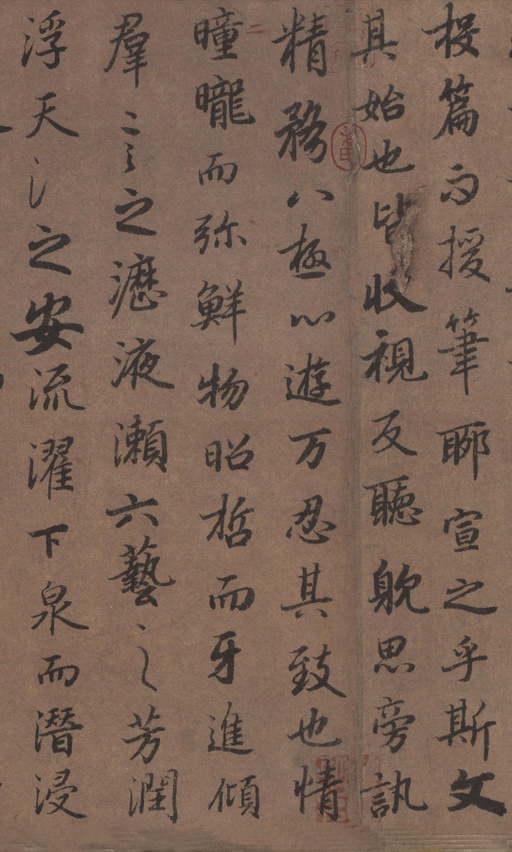 投篇而授筆聊宣之乎斯文
其始也皆收視反聽躭思旁訊
精務八極心遊万忍其致也情
曈曨而弥鮮物昭哲而牙進傾
羣言之瀝液瀨六藝之芳潤
浮天之安流濯下泉而潛浸